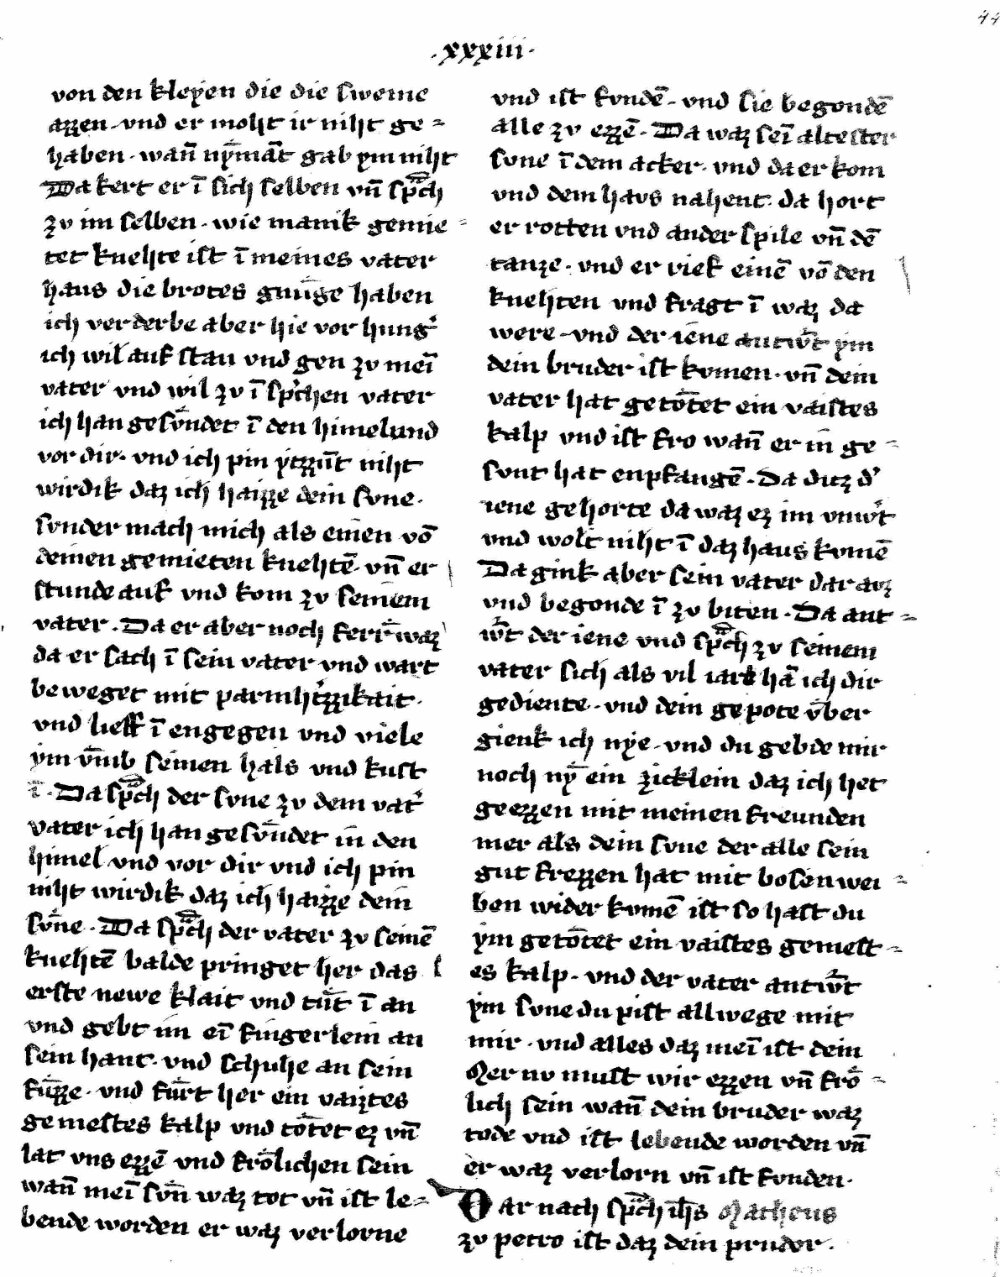 44
·xxxiii·
von den kleyen die die sweine
azzen · vnd er moht ir niht ge-
haben · wan̄ nyma̅t gab ym niht
Da kert er i̅ sich selben vn̄ sp̅ch
zv im selben · wie manik gemie-
tet knehte ist i̅ meines vater
haus die brotes gnu̅ge haben
ich verderbe aber hie vor hung̉
ich wil auf stan vnd gen zv mei̅
vater vnd wil zv i̅ sp̉chen vater
ich han gesv̅ndet i̅ den himel und
vor dir · vnd ich pin niht
wirdik daz ich haizze dein sone ·
sonder mach mich als einen vo̅
deinen gemieten knehte̅ · vn̄ er
stunde auf vnd kom zv seinem
vater · Da er aber noch ferr̅ waz
da er sach i̅ sein vater vnd wart
beweget mit parmhe̅zzikait ·
vnd lieff i̅ engegen vnd viele
ym v̅mb seinen hals vnd kust
i̅ · Da sp̅ch der sone zv dem vat̉
vater ich han gesv̅ndet in den
himel vnd vor dir vnd ich pin
niht wirdik daz ich haizze dein
sv̅ne · Da sp̅ch der vater zv seine̅
knehte̅ balde pringet her das
erste newe klait vnd tu̅t i̅ an
vnd gebt im ei̅ fingerlein an
sein hant · vnd schuhe an sein
fu̅zze · vnd fu̅rt her ein vaiztes
gemestes kalp vnd to̅tet ez vn̄
lat vns ezze̅ vnd fro̅lichen sein
wan̄ mei̅ sv̅n waz tot vn̄ ist le-
bende worden er waz verlorne
vnd ist fonde̅ · vnd sie begonde̅
alle zv ezze̅ · Da waz sei̅ altester
sone i̅ dem acker · vnd da er kom
vnd dem havs nahent · da hort
er rotten vnd ander spile vn̄ de̅
tanze · vnd er rief eine̅ vo̅ den
knehten vnd fragt i̅ waz da
were · vnd der iene antwo̅t ym
dein bruder ist komen · vn̄ dein
vater hat geto̅tet ein vaistes
kalp vnd ist fro wan̄ er in ge-
sont hat enpfange̅ · Da ditz d̉
iene gehorte da waz ez im vnwe̅t
vnd wolt niht i̅ daz haus kome̅
Da gink aber sein vater dar avz
vnd begonde i̅ zv biten · Da ant-
wo̅t der iene vnd sp̅ch zv seinem
vater sich als vil iare ha̅ ich dir
gediente · vnd dein gepote v̅ber
gienk ich nye · vnd du gebde mir
noch ny̅ ein zicklein daz ich het
geezzen mit meinen freunden
mer als dein sone der alle sein
gut frezzen hat mit bosen wei-
ben wider kome̅ ist so hast du
ym geto̅tet ein vaistes gemest-
es kalp · vnd der vater antwo̅t
ym sone du pist allwege mit
mir · vnd alles daz mei̅ ist dein
Mer nv must wir ezzen vn̄ fro̅-
lich sein wan̄ dein bruder waz
tode vnd ist lebende worden vn̄
er waz verlorn vn̄ ist fonden ·
Dar nach sp̅ch ih̅s Matheus
zv petro ist daz dein pruder ·